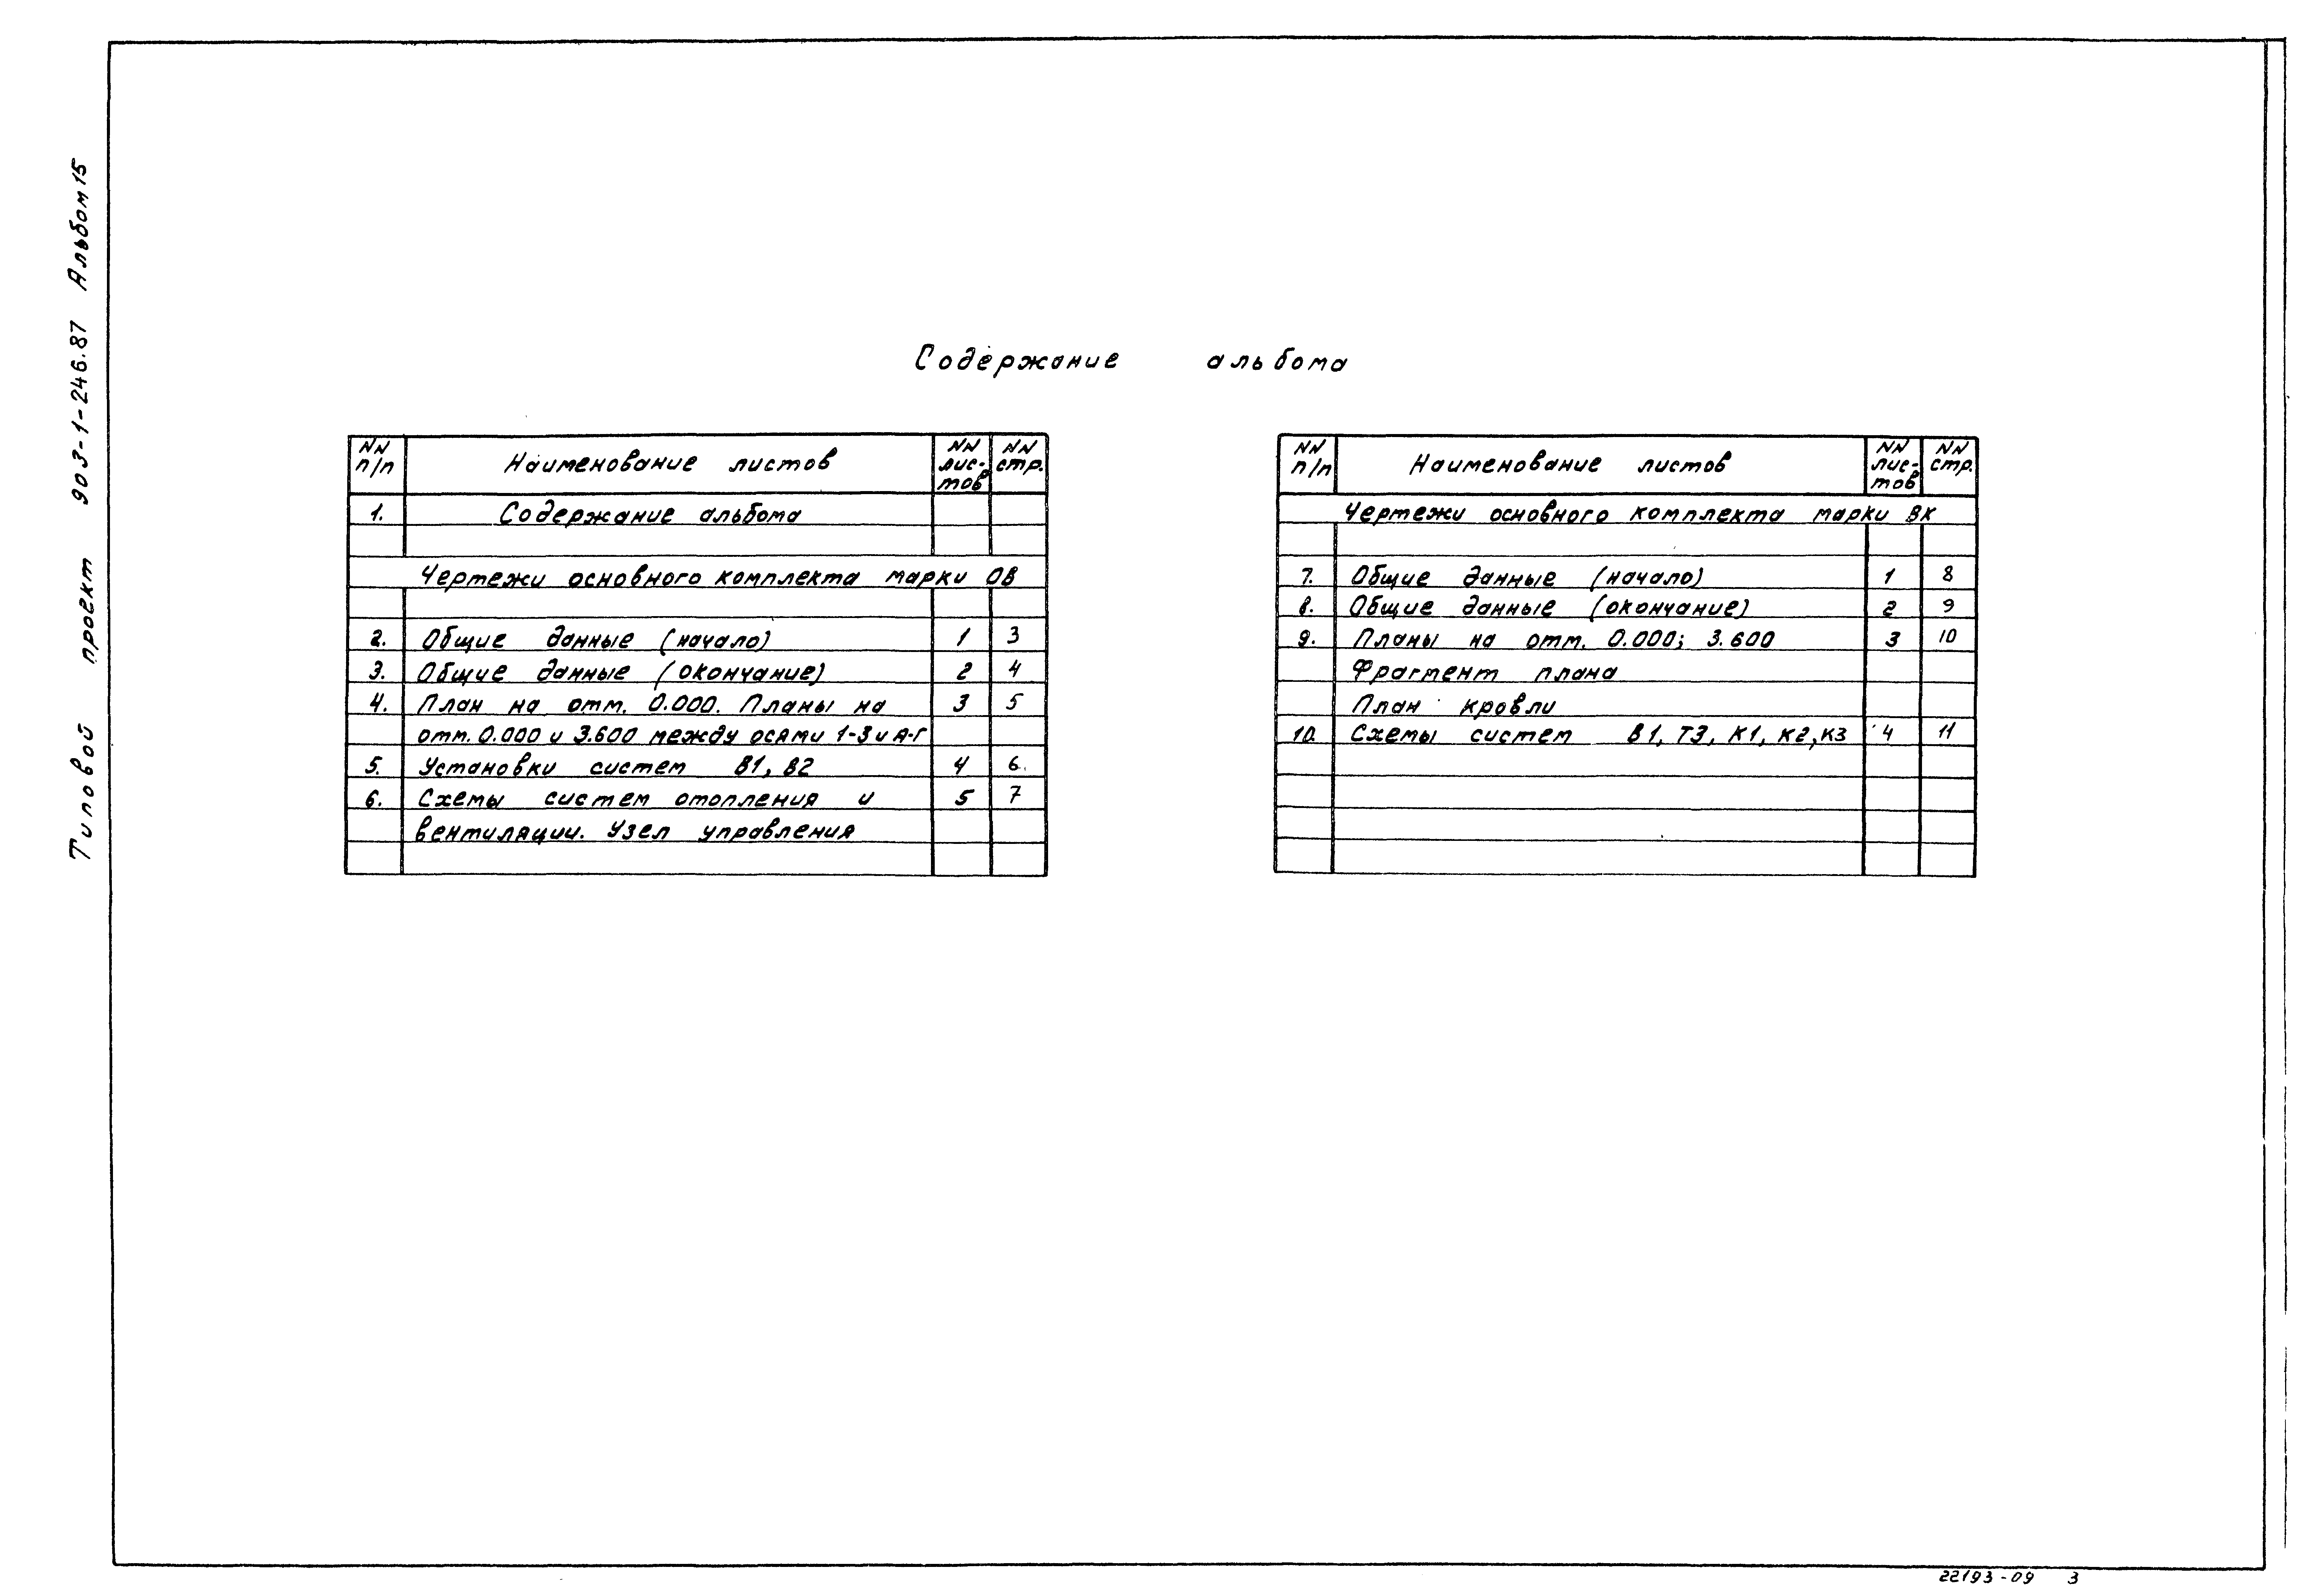 Типовой проект 903-1-246.87 Альбом 15
Содержание альбома
NN п/п Наименование листов NN лис-тов NN стр.
1. Содержание альбома
Чертежи основного комплекта марки ОВ
2. Общие данные (начало) 1 3
3. Общие данные (окончание) 2 4
4. План на отм. 0.000. Планы на 3 5
отм. 0.000 и 3.600 между осями 1-3 и А-Г
5. Установки систем В1, В2 4 6
6. Схемы систем отопления и 5 7
вентиляции. Узел управления
NN п/п Наименование листов NN лис-тов NN стр.
Чертежи основного комплекта марки ВК
7. Общие данные (начало) 1 8
8. Общие данные (окончание) 2 9
9. Планы на отм. 0.000; 3.600 3 10
Фрагмент плана
План кровли
10. Схемы систем В1, Т3, К1, К2, К3 4 11
22193-09 3